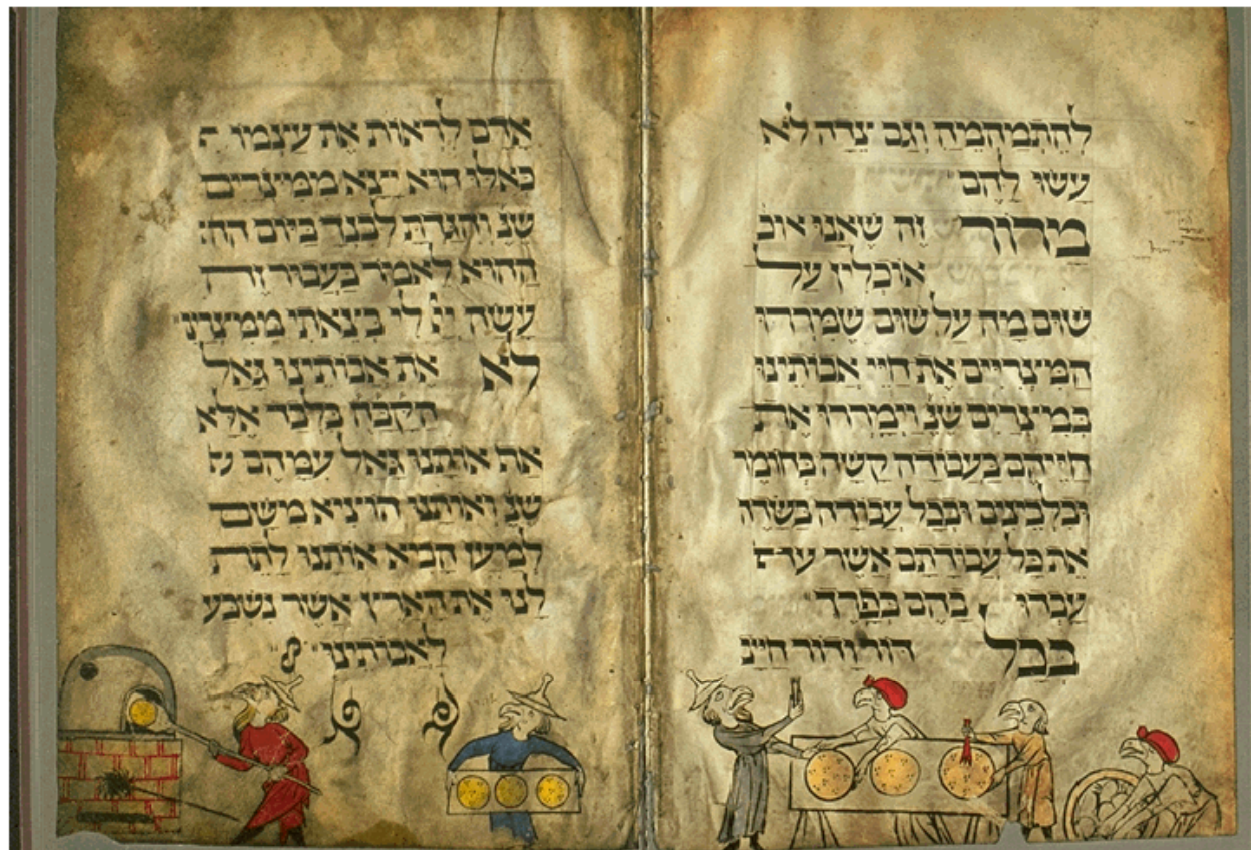 להתמהמה וגם צדה לא
עשו להם
מרור זה שאנו אוכ
אוכלין על
שום מה על שום שמררו
המיצריים את חיי אבותינו
במיצרים שנ וימררו את
חייהם בעבודה קשה בחומר
ובלבינים ובכל עבודה בשדה
את כל עבודתם אשר
עבדו בהם בפרך
בכל דור ודור חייב
אדם לראות את עצמו
כאלו הוא יצא ממיצרים
שנ והגדת לבנך ביום הה
ההוא לאמר בעבור זה
עשה יי לי בצאתי ממיצרים
לא את אבותינו גאל
הקבה בלבד אלא
את אותנו גאל עמהם
שנ ואותנו הוציא משם
למען הביא אותנו לתת
לנו את הארץ אשר נשבע
לאבותינו